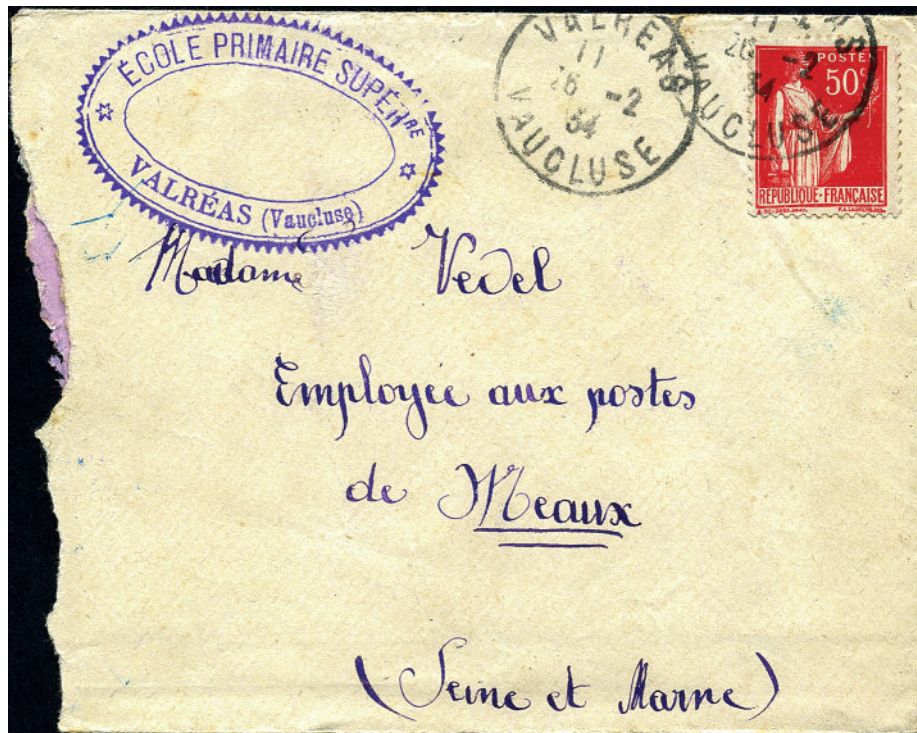 ÉCOLE PRIMAIRE SUPÉRRE
VALRÉAS (Vaucluse)
VALREAS
11
26 -2
34
VAUCLUSE
11
26 -2
34
VAUCLUSE
POSTES
50c
RÉPUBLIQUE-FRANÇAISE
Madame Vedel
Employée aux postes
de Meaux
(Seine et Marne)